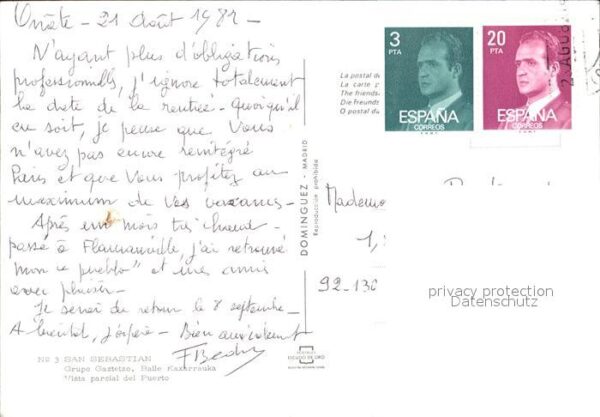 Oñate - 21 Août 1982 -
N'ayant plus d'obligations
professionnelles, j'ignore totalement
la date de la rentrée - Quoiqu'il
en soit, je pense que Vous
n'avez pas encore réintégré
Paris et que Vous profitez au
maximum de Vos vacances -
Après un mois très chaud
passé à Flamanville, j'ai retrouvé
mon "pueblo" et mes amis
avec plaisir -
Je serai de retour le 8 septembre -
A bientôt, j'espère - Bien amicalement
No 3 SAN SEBASTIAN
Grupo Gaztelzo, Balle Kaxarrauka
Vista parcial del Puerto
DOMINGUEZ - MADRID
Reproducción prohibida
La postal de
La carte p
The friends
Die Freunds
O postal du
3
PTA
ESPAÑA
CORREOS
20
PTA
ESPAÑA
CORREOS
2 AGO
Mademo
1,
92-130
privacy protection
Datenschutz
ESCUDO DE ORO